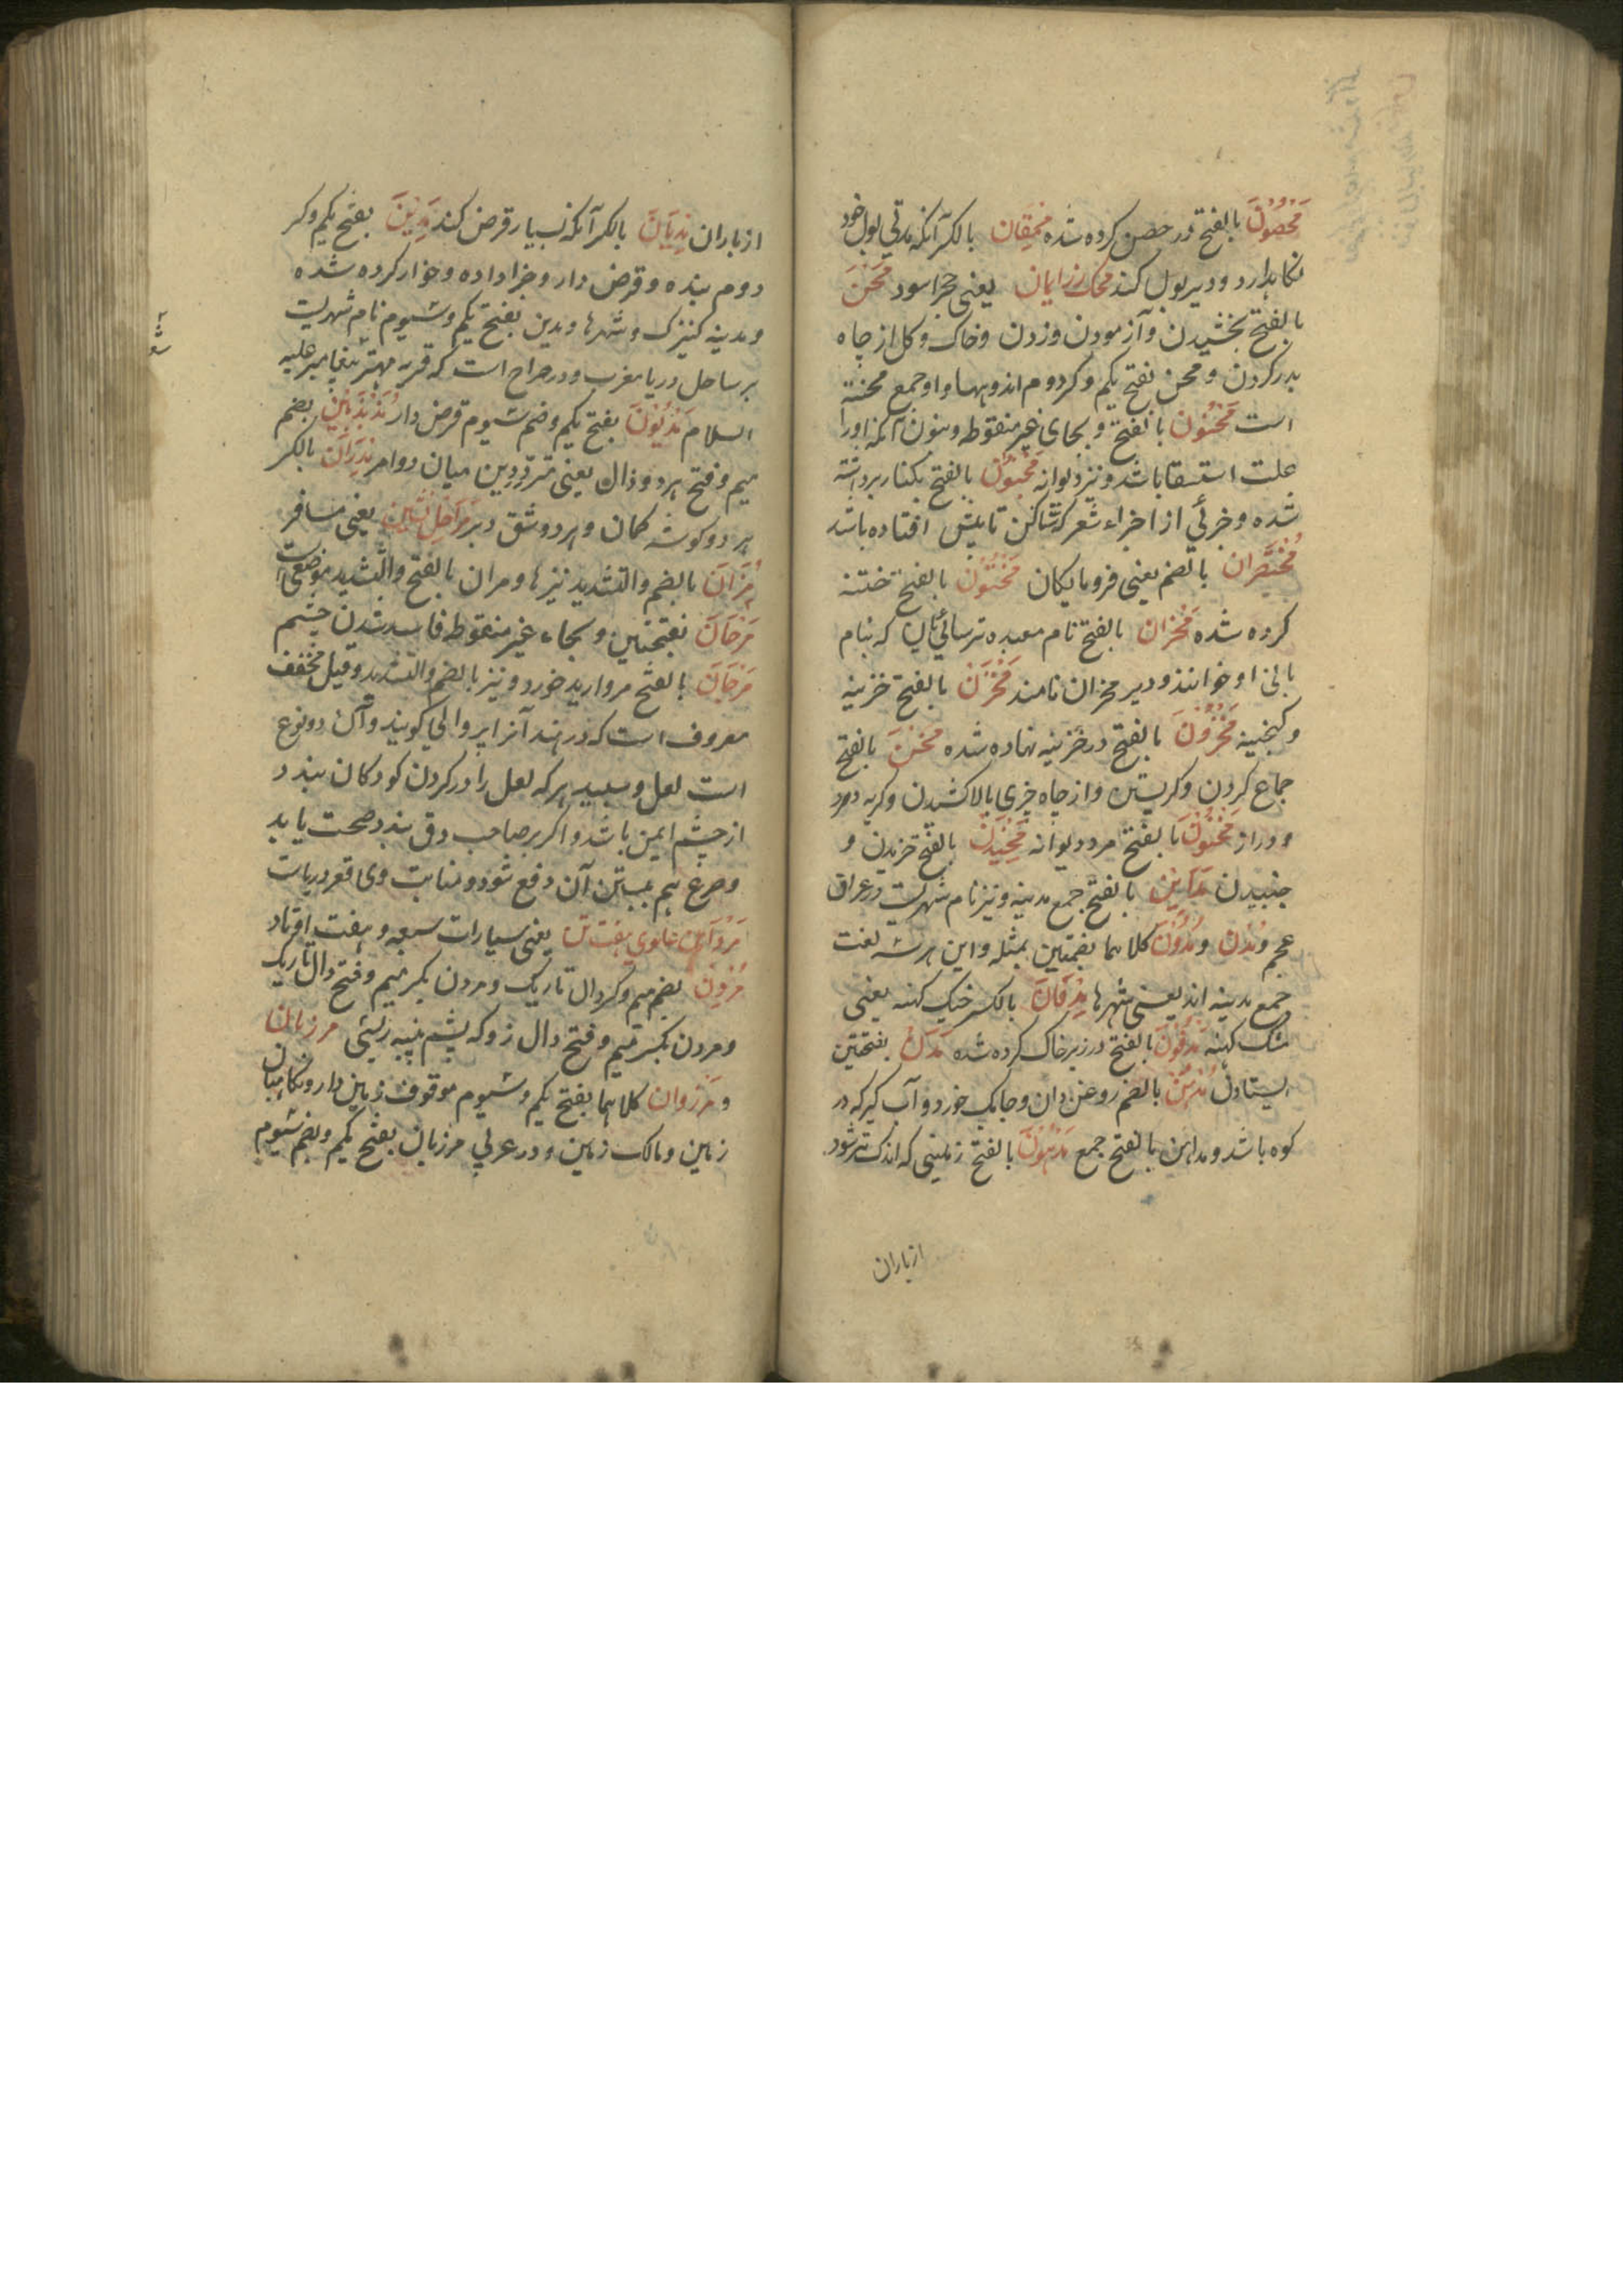 مَحصُونَ بالفتح در حصن کرده شده محقان بالکسر آنکه مدتی بول خود
نکاهدارد و دیر بول کند محک زر ایمان یعنی حجر اسود مَحْنَ
بالفتح بخشیدن و آزمودن و زدن و خاک و کل از چاه
بدر کردن و محن بفتح یکم و کر دوم اندوهها و او جمع محنته
است مَحْنُون بالفتح و بحای غیر منقوطه و بنون آنکه او را
علت استسقا باشد و نیز دیوانه مَخْبُون بالفتح بکنار برداشته
شده و جزئی از اجزاء شعر که ساکن ثانیش افتاده باشد
مُختَصَران بالضم یعنی فرومایکان مَخْتُون بالفتح ختنه
کرده شده مَخْزان بالفتح نام معبد ترسائی که بنام
بانی او خوانند و دیر مخزان نامند مَخْزَن بالفتح خزینه
و کنجینه مَخْزُونَ بالفتح در خزینه نهاده شده مَخْنَ بالفتح
جماع کردن و کریستن و از چاه چیزی بالا کشیدن و کریه و مرد
و دراز مَخْنُونَ بالفتح مرد دیوانه مَخِیدَن بالفتح خزیدن و
جنبیدن مَدَاین بالفتح جمع مدینه و نیز نام شهریست در عراق
عجم و مُدن و مُدُونَ کلاهما بضمتین بمثله و این هر سه لغت
جمع مدینه اند یعنی شهرها مِدْقَانَ بالکسر خیک کهنه یعنی
مشک کهنه مَدفُونَ بالفتح در زیر خاک کرده شده مَدَن بفتحتین
ایستادن مُدهُن بالضم روغن دان و جایک خورد و آب کیر که در
کوه باشد و مداهن بالفتح جمع مَدهُونَ بالفتح زمینی که اندک تر شود
از باران
از باران مِدیَانَ بالکسر آنکه بسیار قرض کند مَدِینَ بفتح یکم و کسر
دوم بنده و قرض دار و جزا داده و خوار کرده شده
و مدینه کنیزک و شهرها و مدین بفتح یکم و سیوم نام شهریست
بر ساحل دریا مغرب و در صراح است که قریه مهتر شعیب پیغامبر علیه
السلام مَدْیُونَ بفتح یکم و ضم سیوم قرض دار مُذَبْذَبِینَ بضم
میم و فتح هر دو ذال یعنی مترددین میان دو امر مِذرَوَان بالکسر
هر دو کوشه کمان و هر دو شق دبر مَرَاحِل نشین یعنی مسافر
مُرَّانَ بالضم و التشدید نیزها و مران بالفتح و التشدید موضعی است
مَرَحَانَ بفتحتین و بحاء غیر منقوطه فاسد شدن چشم
مَرجَانَ بالفتح مروارید خورد و نیز بالضم و التشدید و قیل مخفف
معروف است که در هند آنرا پروالی کویند و آن دو نوع
است لعل و سپید هر که لعل را در کردن کودکان بندد
از چشم ایمن باشد و اکر بر صاحب دق بندد صحت یابد
و صرع هم ببستن آن دفع شود و منابت وی قعر دریاست
مَردَانِ علوی هفت تن یعنی سیارات سبعه و هفت اوتاد
مُردِن بضم میم و کسر دال تاریک و مردن بکسر میم و فتح دال تاریک
و مردن بکسر میم و فتح دال زوکه پشم پنبه ریسی مرزبان
و مَرزوان کلاهما بفتح یکم و سیوم موقوف زمین دار و نکاهبان
زمین و مالک زمین و در عربی مرزبان بفتح یکم و بضم سیوم